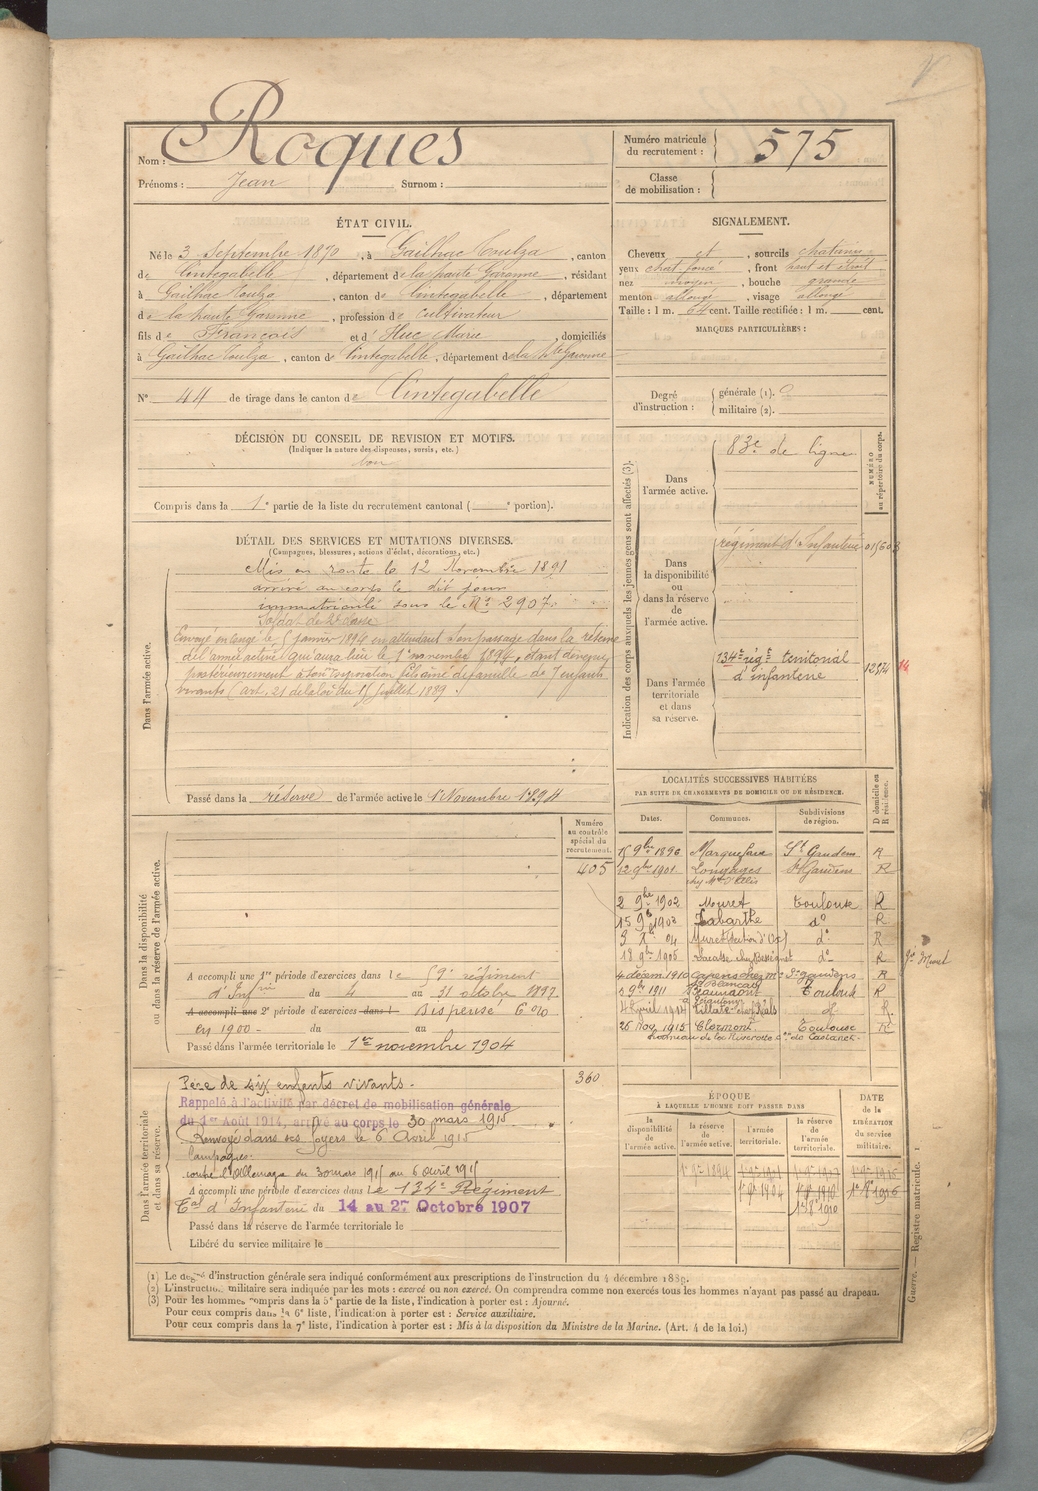 Nom : Roques
Prénoms : Jean Surnom :
Numéro matricule
du recrutement : 575
Classe
de mobilisation :
ÉTAT CIVIL.
Né le 3 Septembre 1870, à Gailhac Toulza, canton
de Cintegabelle, département de la haute Garonne, résidant
à Gailhac Toulza, canton de Cintegabelle, département
de la haute Garonne, profession de cultivateur
fils de François et d' Huc Marie domiciliés
à Gailhac Toulza, canton de Cintegabelle, département de la Hte Garonne
N° 44 de tirage dans le canton de Cintegabelle
SIGNALEMENT.
Cheveux et, sourcils chatains
yeux chat. foncé, front haut et étroit
nez moyen, bouche grande
menton allongé, visage allongé
Taille : 1 m. 64 cent. Taille rectifiée : 1 m. cent.
MARQUES PARTICULIÈRES :
Degré
d'instruction :
générale (1).
militaire (2).
DÉCISION DU CONSEIL DE REVISION ET MOTIFS.
(Indiquer la nature des dispenses, sursis, etc.)
bon
Compris dans la 1e partie de la liste du recrutement cantonal ( e portion).
DÉTAIL DES SERVICES ET MUTATIONS DIVERSES.
(Campagnes, blessures, actions d'éclat, décorations, etc.)
Dans l'armée active.
Mis en route le 12 Novembre 1891
arrivé au corps le dit jour
immatriculé sous le N° 2907.
Soldat de 2e classe
Envoyé en congé le 5 janvier 1894 en attendant son passage dans la réserve
de l'armée active qui aura lieu le 1er novembre 1894, étant devenu
postérieurement à son incorporation fils aîné de famille de 7 enfants
vivants (art. 21 de la loi du 15 juillet 1889.)
Passé dans la réserve de l'armée active le 1er Novembre 1894
Indication des corps auxquels les jeunes gens sont affectés (3).
NUMÉRO
au répertoire du corps.
Dans
l'armée active.
83e de ligne
Dans
la disponibilité
ou
dans la réserve
de
l'armée active.
régiment d'Infanterie
Dans l'armée
territoriale
et dans
sa réserve.
134e régt territorial
d'infanterie
LOCALITÉS SUCCESSIVES HABITÉES
PAR SUITE DE CHANGEMENTS DE DOMICILE OU DE RÉSIDENCE.
Dates. Communes. Subdivisions
de région. D domicile ou
R résidence.
15 9bre 1896 Marquefave St Gaudens R
12 9bre 1901 Longages St Gaudens R
2 9bre 1902 Muret Toulouse R
15 9b 1903 Labarthe do R
04 Muret do R
18 9bre 1906 do R
4 décem. 1910 Capens chez Mr St gaudens R
9bre 1911 Beaumont Toulouse R
4 avril 1914 R
26 Nov. 1915 Clermont Toulouse R
hameau de la Riverotte
Dans la disponibilité
ou dans la réserve de l'armée active.
Numéro
au contrôle
spécial du
recrutement.
405
A accompli une 1re période d'exercices dans le 59e régiment
d'Infrie du 4 au 31 octobre 1897
A accompli une 2e période d'exercices dans l Dispensé 6 %
en 1900 - du au
Passé dans l'armée territoriale le 1er novembre 1904
Dans l'armée territoriale
et dans sa réserve.
360
Père de six enfants vivants.
Rappelé à l'activité par décret de mobilisation générale
du 1er Août 1914, arrivé au corps le 30 mars 1915
Renvoyé dans ses foyers le 6 Avril 1915
Campagnes:
contre l'Allemagne du 30 mars 1915 au 6 avril 1915
A accompli une période d'exercices dans le 134e Régiment
Tal d'Infanterie du 14 au 27 Octobre 1907
Passé dans la réserve de l'armée territoriale le
Libéré du service militaire le
ÉPOQUE
À LAQUELLE L'HOMME DOIT PASSER DANS
DATE
de la
LIBÉRATION
du service
militaire.
la
disponibilité
de
l'armée active.
la réserve
de
l'armée active.
l'armée
territoriale.
la réserve
de
l'armée
territoriale.
(1) Le degré d'instruction générale sera indiqué conformément aux prescriptions de l'instruction du 4 décembre 1889.
(2) L'instruction militaire sera indiquée par les mots : exercé ou non exercé. On comprendra comme non exercés tous les hommes n'ayant pas passé au drapeau.
(3) Pour les hommes compris dans la 5e partie de la liste, l'indication à porter est : Ajourné.
Pour ceux compris dans la 6e liste, l'indication à porter est : Service auxiliaire.
Pour ceux compris dans la 7e liste, l'indication à porter est : Mis à la disposition du Ministre de la Marine. (Art. 4 de la loi.)
Guerre. — Registre matricule. 1